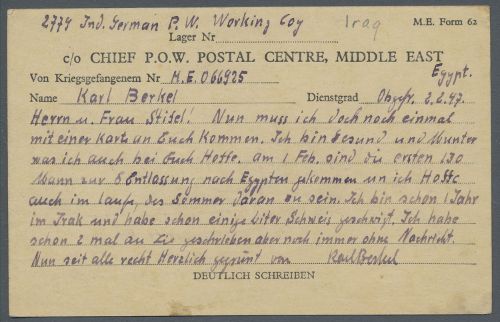 2779 Ind. German P.W. Working Coy Iraq M.E. Form 62
Lager Nr
c/o CHIEF P.O.W. POSTAL CENTRE, MIDDLE EAST
Egypt.
Von Kriegsgefangenem Nr M.E. 066925
Name Karl Berkel Dienstgrad Obgfr. 2.2.47.
Herrn u. Frau Stißel! Nun muss ich doch noch einmal
mit einer Karte an Euch Kommen. Ich bin Gesund und Munter
was ich auch bei Euch Hoffe. am 1 Feb. sind die ersten 130
Mann zur Entlassung nach Egypten gekommen un ich Hoffe
auch im laufe des Sommer daran zu sein. Ich bin schon 1 Jahr
im Irak und habe schon einige Liter Schweis geschwizt. Ich habe
schon 2 mal an Sie geschrieben aber noch immer ohne Nachricht.
Nun seit alle recht Herzlich gegrüßt von Karl Berkel
DEUTLICH SCHREIBEN